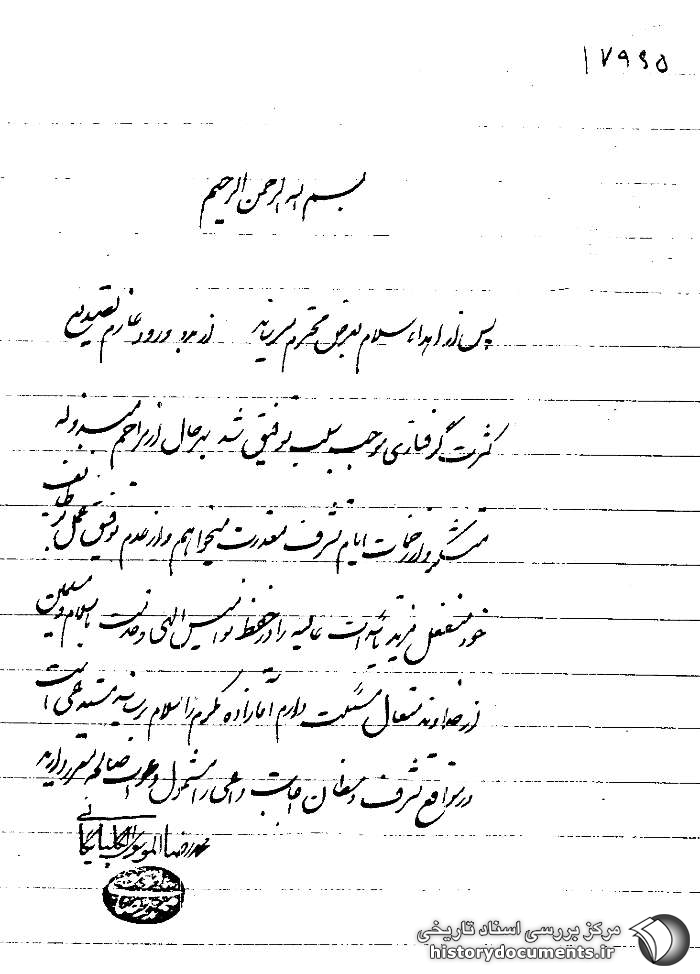 ۱۷۹۶۵
بسم الله الرحمن الرحیم
پس از اهداء سلام بعرض محترم میرساند از بدو ورود عازم تصدیع
کثرت گرفتاری موجب سلب توفیق شد بهرحال از مراحم مبذوله
متشکر و از زحمات ایام تشرف معذرت میخواهم و از عدم توفیق عمل بوظایف
خود منفعل مزید تأییدات عالیه را در حفظ نوامیس الهی و خدمت باسلام و مسلمین
از خداوند متعال مسئلت دارم آقازاده مکرم را سلام برسانید مستدعی است
در مواقع تشرف و مظان اجابت داعی را مشمول دعوات صالحه قرار دارید
محمدرضا الموسوی الگلپایگانی
مرکز بررسی اسناد تاریخی
historydocuments.ir